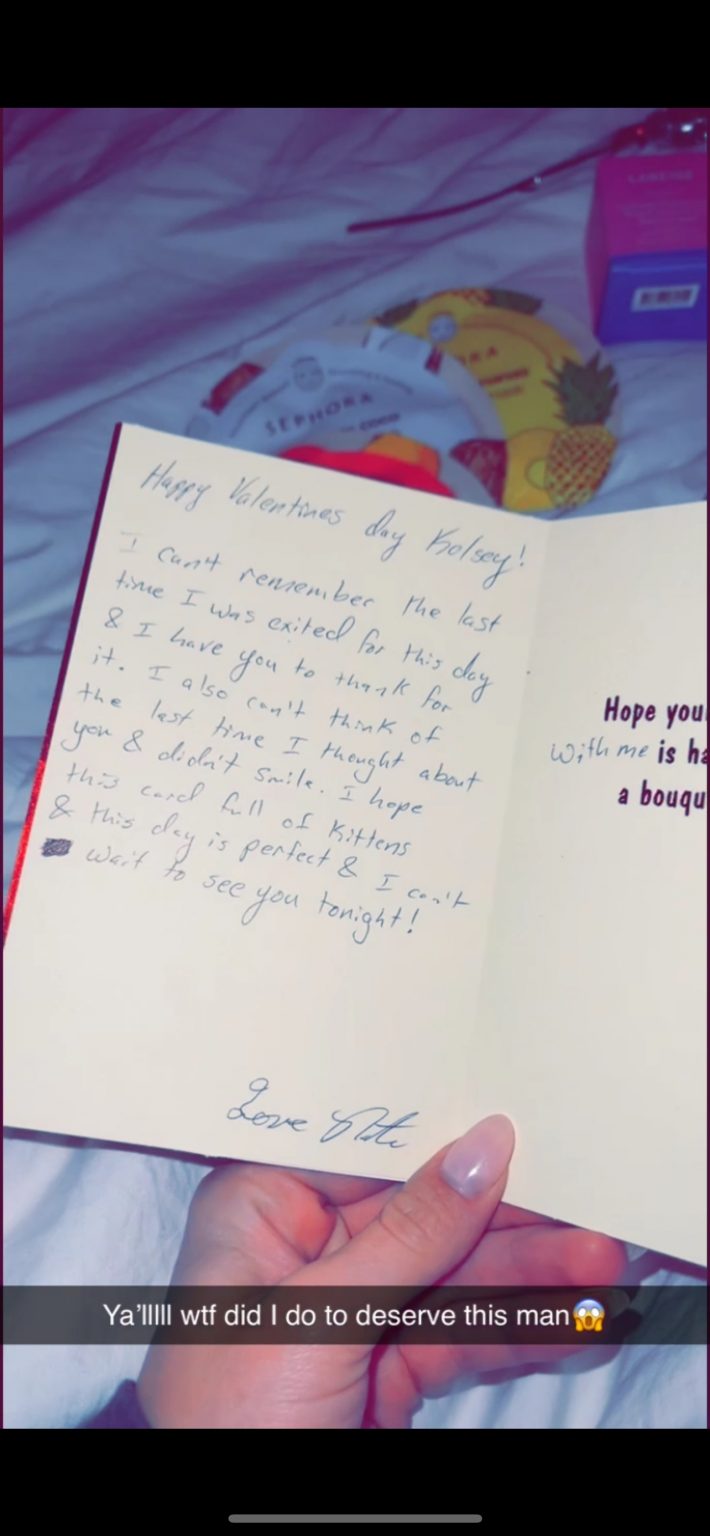 LANEIGE
SEPHORA
COCO
Happy Valentines day Kelsey!
I can't remember the last
time I was exited for this day
& I have you to thank for
it. I also can't think of
the last time I thought about
you & didn't smile. I hope
this card full of kittens
& this day is perfect & I can't
wait to see you tonight!
Love Nate
Hope you
with me is ha
a bouqu
Ya'lllll wtf did I do to deserve this man😱